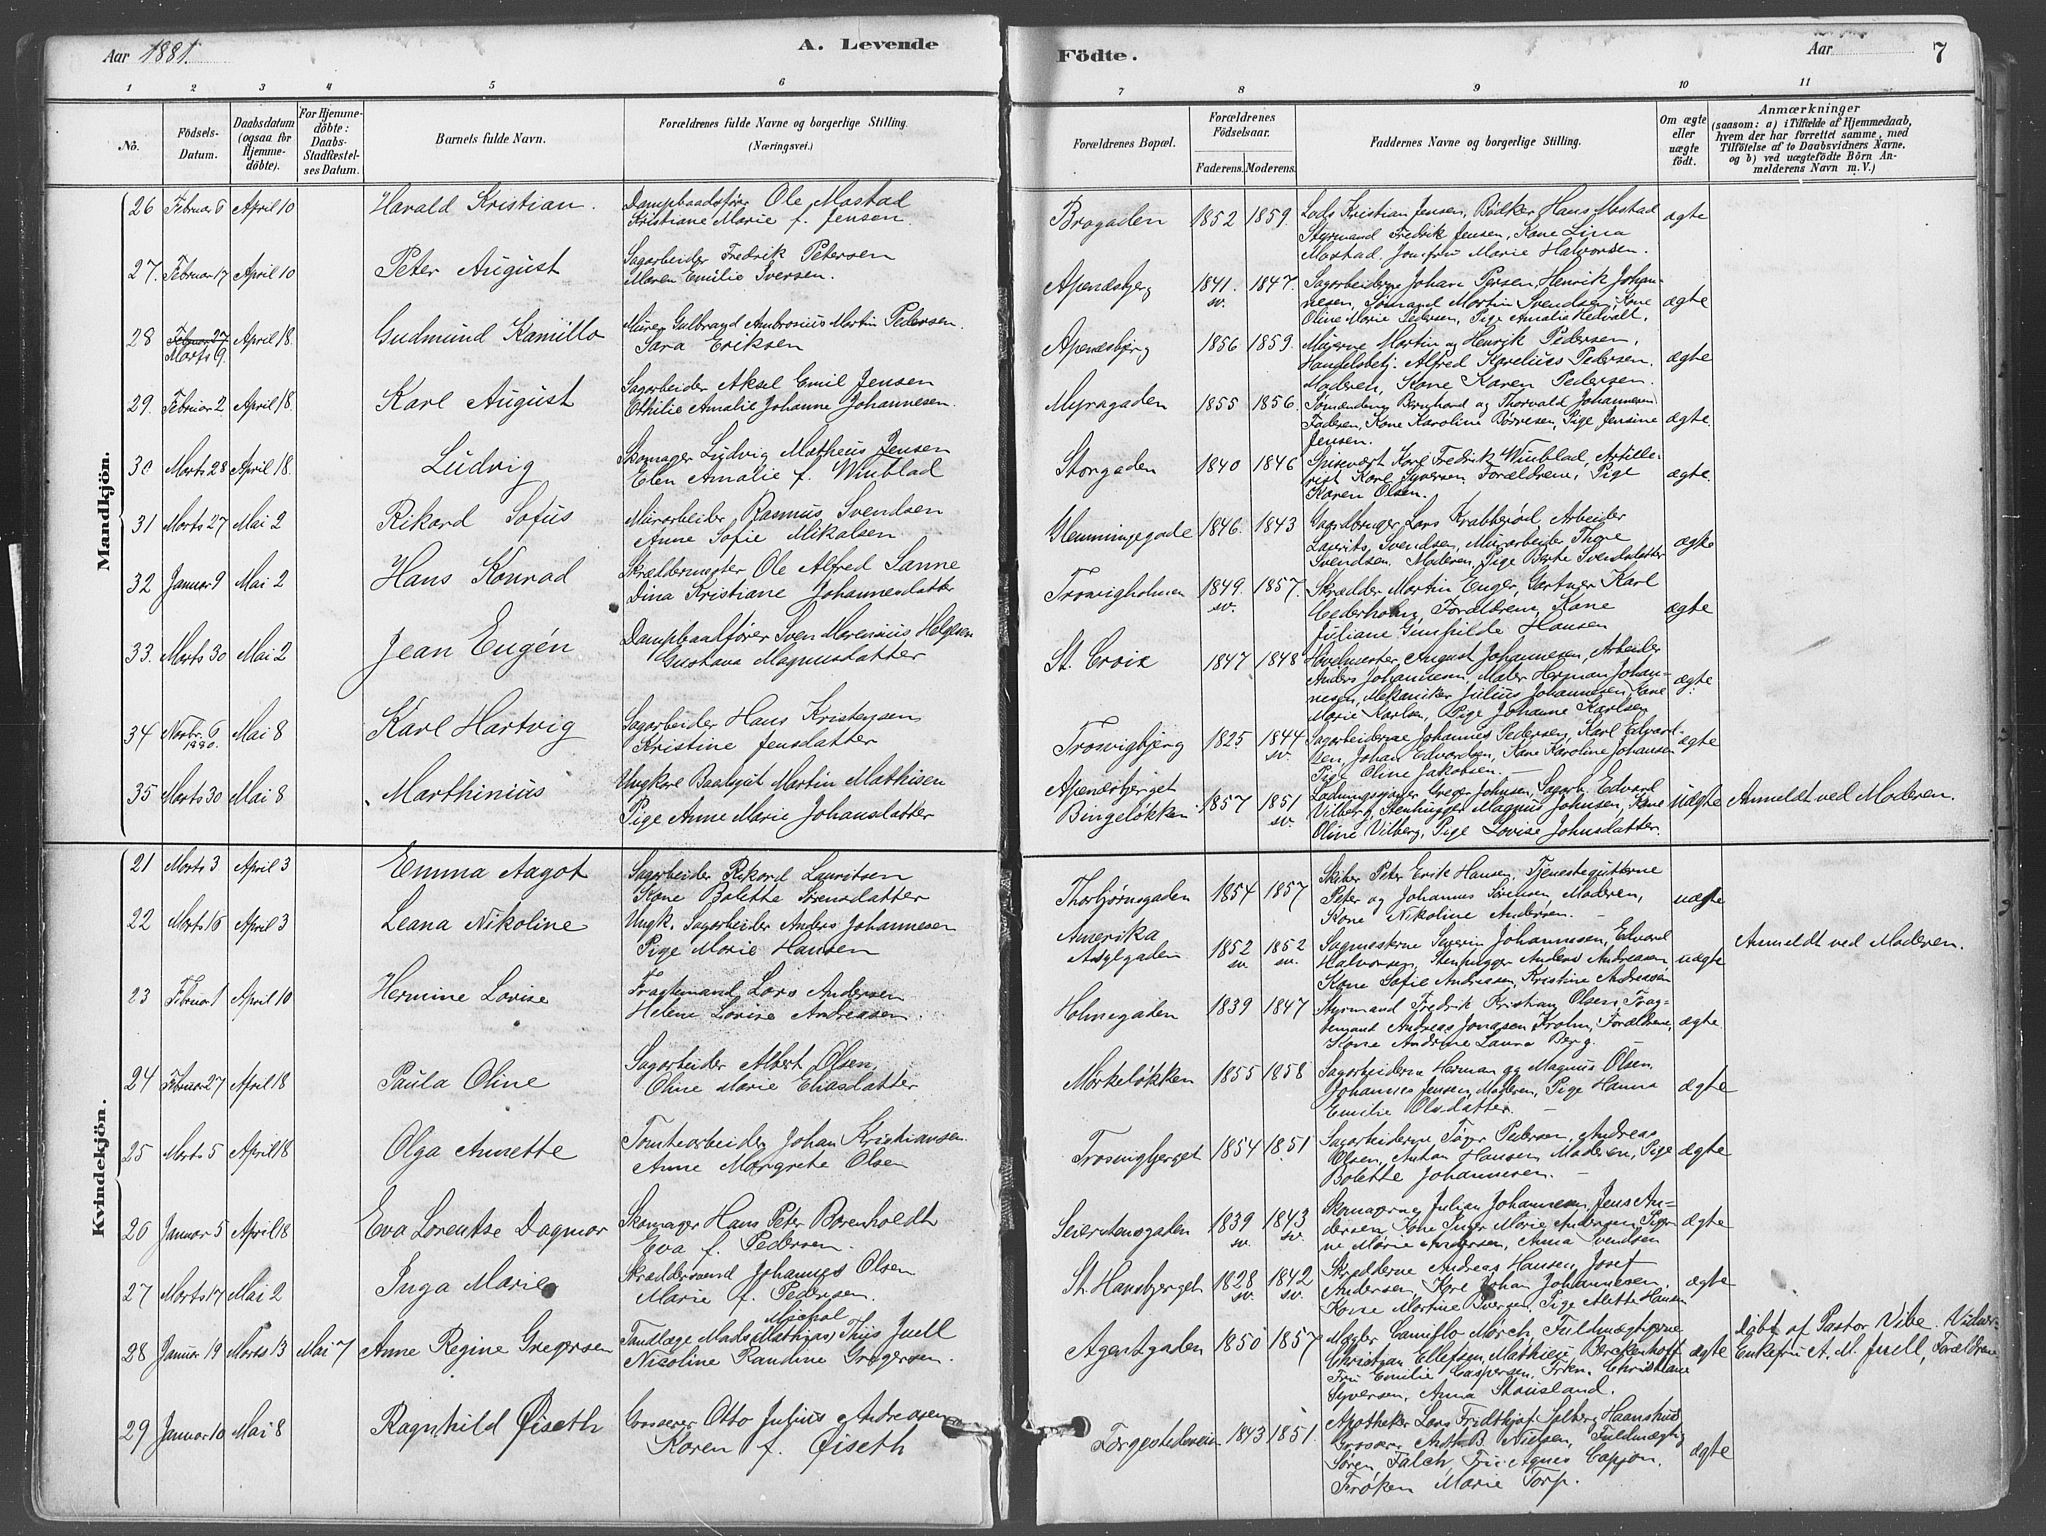 Aar 1881. A. Levende
Födte. Aar 7
1 2 3 4 5 6 7 8 9 10 11
No.
Födsels-Datum.
Daabsdatum (ogsaa for Hjemme-döbte).
For Hjemme-döbte: Daabs-Stadfæstel-ses Datum.
Barnets fulde Navn.
Forældrenes fulde Navne og borgerlige Stilling.
(Næringsvei.)
Forældrenes Bopæl.
Forældrenes Födselsaar.
Faderens. Moderens.
Faddernes Navne og borgerlige Stilling.
Om ægte eller uægte födt.
Anmærkninger
(saasom: a) i Tilfælde af Hjemmedaab,
hvem der har forrettet samme, med
Tilföielse af to Daabsvidners Navne.
og b) ved uægtefödte Börn An-
melderens Navn m. V.)
Mandkjön.
26 Februar 6 April 10 Harald Kristian. Dampbaadsfører Ole Mostad
Kristiane Marie f. Jensen
Brogaden 1852 1859. Lods Kristian Jensen, Bødker Hans Mostad
Styrmand Fredrik Jensen, Kone Lina
Mostad, Jomfru Marie Halvorsen. ægte
27. Februar 17 April 10 Peter August Sagarbeider Fredrik Petersen
Maren Emilie Iversen.
Apenæsbjerg 1841. sv. 1847. Sagarbeiderne Johan Persen, Henrik Johan-
nesen, Sømand Martin Svendsen, Kone
Oline Marie Pedersen, Pige Amalia Hedvalt. ægte
28 Februar 27 Marts 9 April 18. Gudmund Kamillo Murer Gulbrand Ambrosius Martin Pedersen.
Sara Eriksen
Apenæsbjerg 1856 1859. Murerne Martin og Henrik Pedersen,
Handelsbetj. Alfred Karelius Pedersen.
Moderen, Kone Karen Pedersen. ægte
29. Februar 2 April 18. Karl August Sagarbeider Aksel Emil Jensen
Othilie Amalie Johanne Johannesen.
Myragaden 1855 1856. Sømændene Bernhard og Thorvald Johannesen
Faderen, Kone Karoline Børresen, Pige Jensine
Jensen. ægte.
30 Marts 28 April 18. Ludvig Skomager Ludvig Matheus Jensen
Elen Amalie f. Winblad
Storgaden 1840 1846 Spisevært Karl Fredrik Winblad, Artille-
rist Karl Syversen, Forældrene, Pige
Karen Olsen. ægte.
31 Marts 27 Mai 2 Rikard Sofus Murarbeider Rasmus Svendsen
Anne Sofie Mikalsen
Glemmingegade 1846. 1843 Gaardbruger Lars Krabberød, Arbeider
Laurits Svendsen, Murarbeider Thore
Svendsen, Moderen, Pige Berte Svendsdatter ægte
32 Januar 9 Mai 2 Hans Konrad Skræddermester Ole Alfred Sanne
Dina Kristiane Johannesdatter
Trosvigholmen 1849. sv. 1857. Skrædder Martin Enger, Gartner Karl
Cederholm, Forældrene, Kone
Juliane Gunhilde Hansen ægte
33. Marts 30 Mai 2 Jean Eugén Dampbaatfører Sven Marensius Helgesen
Gustava Magnusdatter
St. Croix 1847 1848 August Johannesen, Arbeider
Anders Johannesen, Maler Herman Johan-
nesen, Mekaniker Julius Johannesen, Kone
Marie Karlsen, Pige Johanne Karlsen ægte.
34 Novbr. 6 1880. Mai 8 Karl Hartvig Sagarbeider Hans Kristensen
Kristine Jensdatter
Trosvigbjerg 1825 1844 sv. Sagarbeiderne Johannes Pedersen, Karl Edvard-
sen, Johan Edvardsen, Kone Karoline Johansen
Pige Oline Jakobsen. — ægte
35 Marts 30 Mai 8 Marthinius Ungkarl Baatsgut Martin Mathisen
Pige Anne Marie Johansdatter
Apenæsbjerget Bingeløkken 1857 1851 sv. Ladningsgager Greger Johnsen, Sagarb. Edvard
Vilberg, Stenhugger Magnus Johnsen, Kone
Oline Vilberg, Pige Lovise Johnsdatter. uægte Anmeldt ved Moderen.
Kvindekjön.
21 Marts 3 April 3 Emma Aagot Sagarbeider Rikard Lauritsen
Kone Bolette Sørensdatter
Thorbjørnsgaden 1854 1857 Skiber Peter Erik Hansen, Tjenestegutterne
Peter og Johannes Sørensen, Moderen,
Kone Nikoline Andersen. — uægte
22 Marts 16 April 3 Leana Nikoline Ungk. Sagarbeider Anders Johannesen
Pige Marie Hansen
Amerika Asylgaden 1852 sv. 1852 sv. Sagmesterne Severin Johannesen, Edvard
Halvorsen, Stenhugger Anders Andreasen
Kone Sofie Andreasen, Kristine Andreasen uægte Anmeldt ved Moderen.
23 Februar 1 April 10 Hermine Lovise Fragtemand Lars Andersen
Helene Lovise Andreasen.
Holmegaden 1839 1847 Styrmand Fredrik Kristian Olsen, Frag-
temand Andreas Jonassen Krohn, Forældrene,
Kone Andrine Laura Berg. ægte
24 Februar 27 April 18 Paula Oline Sagarbeider Albert Olsen,
Oline Marie Eliasdatter.
Mørkeløkken 1855 1858 Sagarbeiderne Herman og Magnus Olsen.
Johannes Jensen, Moderen, Pige Hanna
Emilie Olsdatter. — ægte
25 Marts 5 April 18 Olga Annette Tomtearbeider Johan Kristiansen.
Anne Margrete Olsen
Trosvigbjerget 1854 1851 Sagarbeiderne Tøger Pedersen, Andreas
Olsen, Anton Hansen, Moderen, Pige
Bolette Johannesen. — ægte
26 Januar 5 April 18 Eva Lorentse Dagmar Skomager Hans Peter Borenholdt
Eva f. Pedersen.
Seierstensgaden 1839 sv. 1843 sv. Skomagerne Julian Johannesen, Jens An-
dersen, Kone Inger Marie Andersen, Piger-
ne Marie Andersen, Anna Svendsen ægte
27 Marts 17 Mai 2 Inga Marie Skræddersvend Johannes Olsen
Marie f. Pedersen.
St. Hansbjerget 1828 sv. 1842 sv. Skrædderne Andreas Hansen, Josef
Andersen, Karl Johan Johannesen.
Kone Martine Iversen, Pige Alette Hansen ægte
28 Januar 19 Marts 13 Mai 7 Anne Regine Gregersen Tandlæge Mads Mathias Michal Thijs Juell
Nicoline Paudine Gregersen.
Agentgaden 1850 1857 Mægler Camillo Mørch, Fuldmægtigerne
Christian Ellefsen, Mathieu Brekenhoff
Fru Emilie Caspersen, Frkn. Christiane
Syversen, Anna Stousland. ægte Døbt af Pastor Vibe. Vidner
Enkefru A. M. Juell, Forældrene
29 Januar 10 Mai 8 Ragnhild Øiseth Grosserer Otto Julius Andreasen
Karen f. Øiseth
Færgestedsveien 1843 1851. Apotheker Lars Fridthjof Solberg Haanshus
Grosserer Andr. B. Nielsen, Fuldmægtig
Søren Falch, Fru Agnes Cappon.
Frøken Marie Torp. ægte